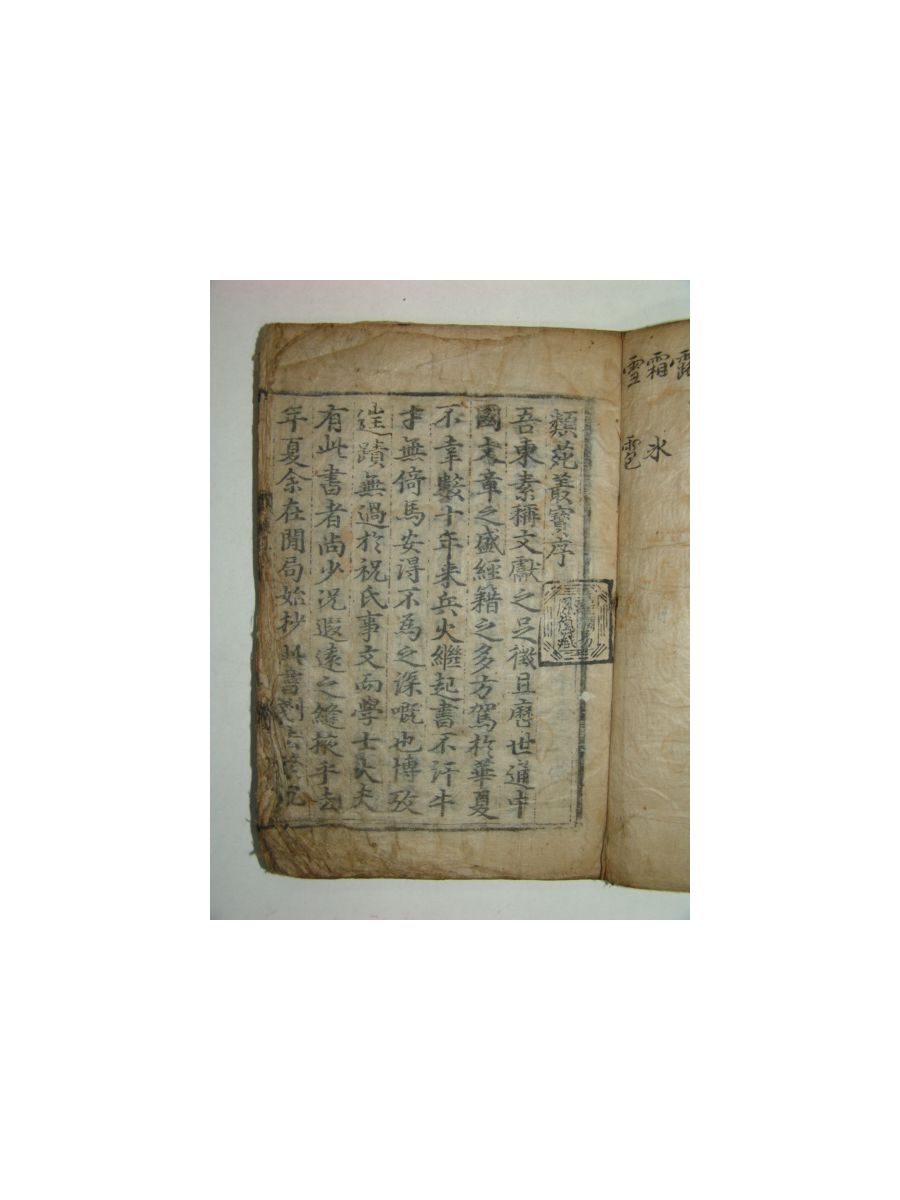 霜氷
雪雹
類苑叢寶序
吾東素稱文獻之足徵且歷世通中
國文章之盛經籍之多方駕於華夏
不幸數十年来兵火繼起書不汗牛
才無倚馬安得不爲之深嘅也博攷
蹟無過於祝氏事文而學士大夫
有此書者尚少況遐遠之縫掖乎去
年夏余在閒局始抄此書刪去繁冗